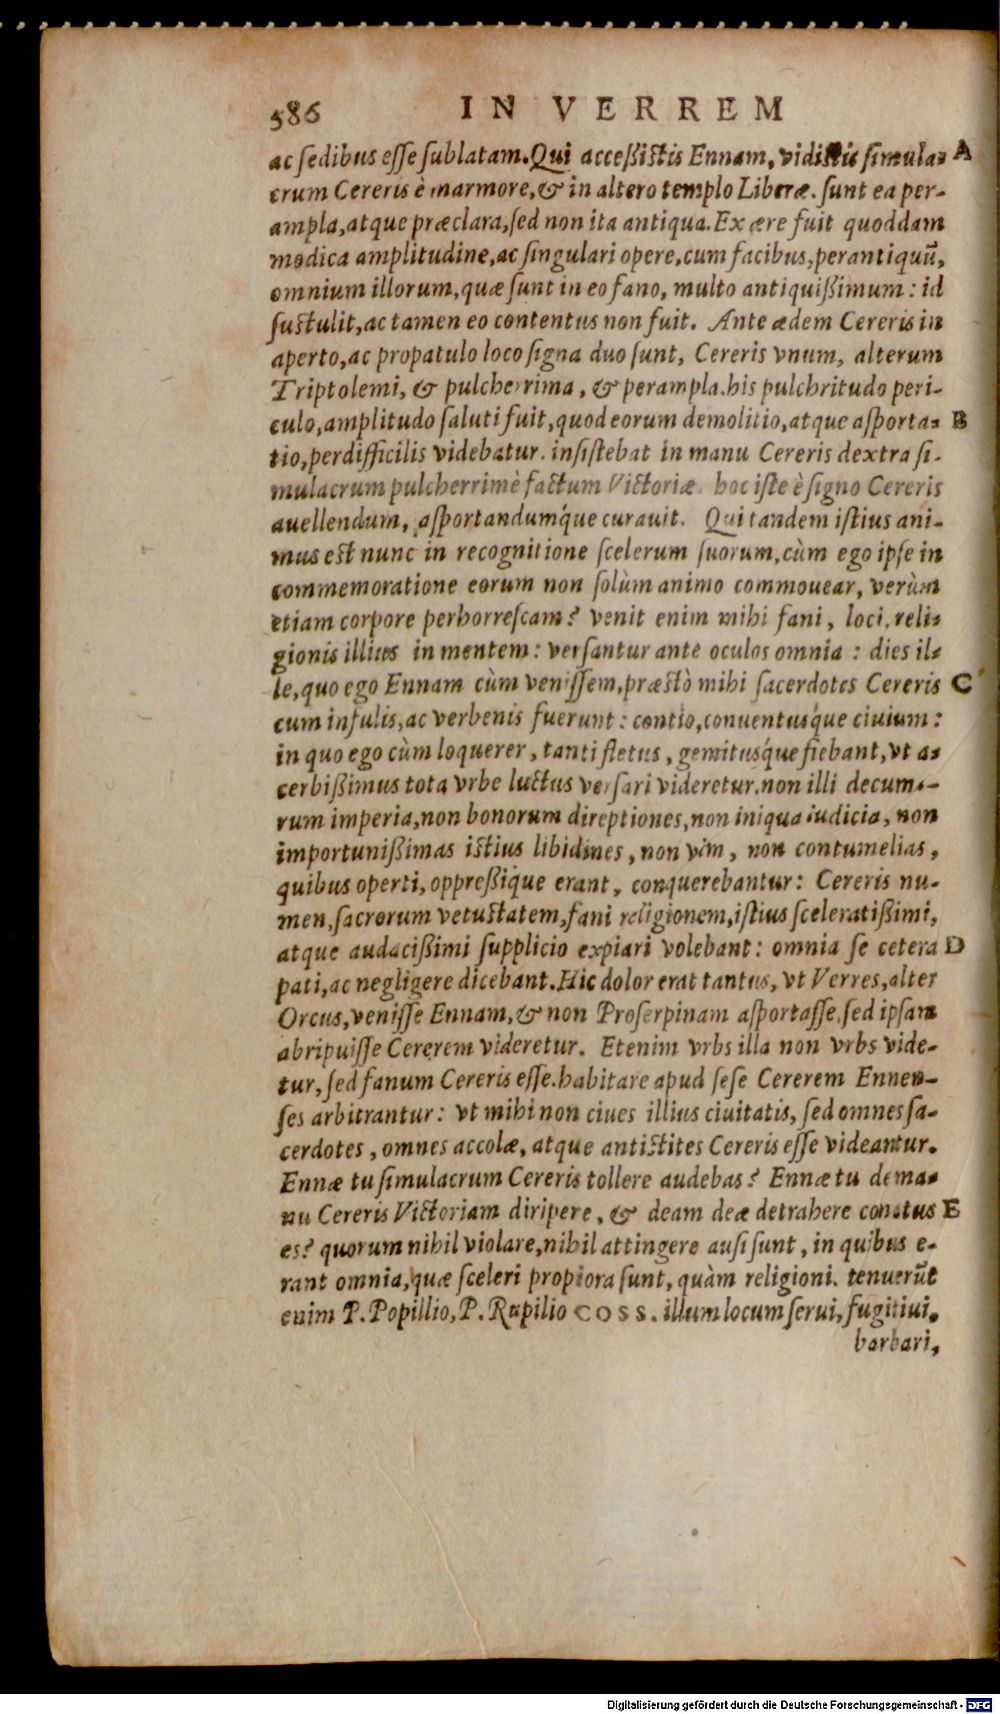 586 IN VERREM
ac ſedibus eſſe ſublatam. Qui acceßiſtis Ennam, vidiſtis ſimula- A
crum Cereris è marmore, & in altero templo Liberæ. ſunt ea per-
ampla, atque præclara, ſed non ita antiqua. Ex ære fuit quoddam
modica amplitudine, ac ſingulari opere, cum facibus, perantiquū,
omnium illorum, quæ ſunt in eo fano, multo antiquißimum: id
ſuſtulit, ac tamen eo contentus non fuit. Ante ædem Cereris in
aperto, ac propatulo loco ſigna duo ſunt, Cereris vnum, alterum
Triptolemi, & pulcherrima, & perampla. his pulchritudo peri-
culo, amplitudo ſaluti fuit, quod eorum demolitio, atque aſporta- B
tio, perdifficilis videbatur. inſiſtebat in manu Cereris dextra ſi-
mulacrum pulcherrimè factum Victoriæ. hoc iſte è ſigno Cereris
auellendum, aſportandumq́ue curauit. Qui tandem iſtius ani-
mus eſt nunc in recognitione ſcelerum ſuorum, cùm ego ipſe in
commemoratione eorum non ſolùm animo commouear, verùm
etiam corpore perhorreſcam? venit enim mihi fani, loci, reli-
gionis illius in mentem: verſantur ante oculos omnia: dies il-
le, quo ego Ennam cùm veniſſem, præſtò mihi ſacerdotes Cereris C
cum infulis, ac verbenis fuerunt: contio, conuentusq́ue ciuium:
in quo ego cùm loquerer, tanti fletus, gemitusq́ue fiebant, vt a-
cerbißimus tota vrbe luctus verſari videretur. non illi decuma-
rum imperia, non bonorum direptiones, non iniqua iudicia, non
importunißimas iſtius libidines, non vim, non contumelias,
quibus operti, oppreßique erant, conquerebantur: Cereris nu-
men, ſacrorum vetuſtatem, fani religionem, iſtius ſceleratißimi,
atque audacißimi ſupplicio expiari volebant: omnia ſe cetera D
pati, ac negligere dicebant. Hic dolor erat tantus, vt Verres, alter
Orcus, veniſſe Ennam, & non Proſerpinam aſportaſſe, ſed ipſam
abripuiſſe Cererem videretur. Etenim vrbs illa non vrbs vide-
tur, ſed fanum Cereris eſſe. habitare apud ſeſe Cererem Ennen-
ſes arbitrantur: vt mihi non ciues illius ciuitatis, ſed omnes ſa-
cerdotes, omnes accolæ, atque antiſtites Cereris eſſe videantur.
Ennæ tu ſimulacrum Cereris tollere audebas? Ennæ tu de ma-
nu Cereris Victoriam diripere, & deam deæ detrahere conatus E
es? quorum nihil violare, nihil attingere auſi ſunt, in quibus e-
rant omnia, quæ ſceleri propiora ſunt, quàm religioni. tenuerūt
enim P. Popillio, P. Rupilio COSS. illum locum ſerui, fugitiui,
barbari,
Digitalisierung gefördert durch die Deutsche Forschungsgemeinschaft - DFG